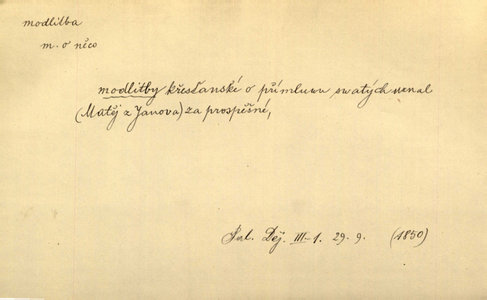 modlitba
m. o něco
modlitby křesťanské o přímluvu swatých uznal
(Matěj z Janova) za prospěšné,
Pal. Děj. III-1. 29. 9. (1850)